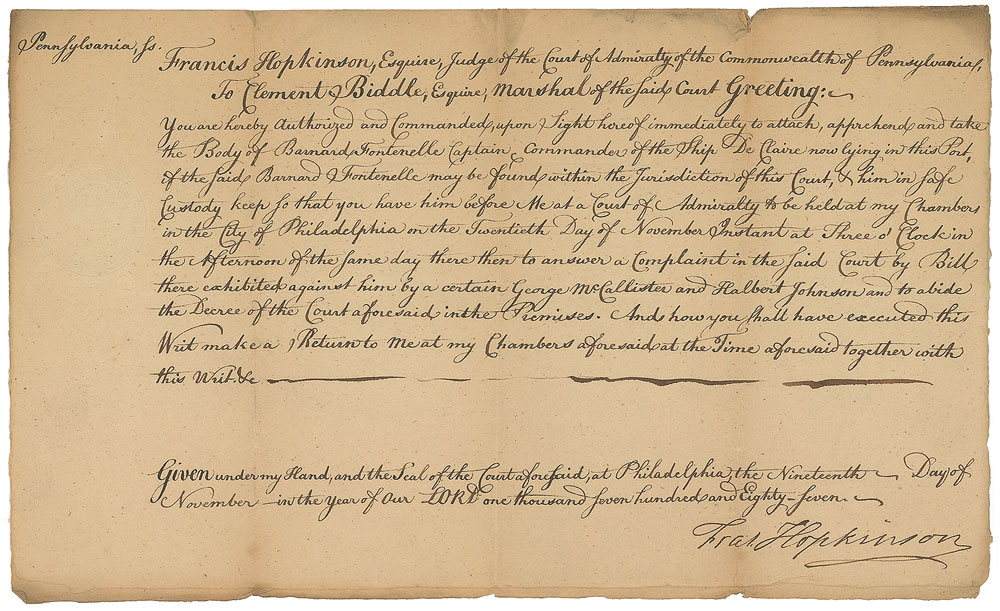 Pennsylvania, ss.
Francis Hopkinson, Esquire, Judge of the Court of Admiralty of the Commonwealth of Pennsylvania,
To Clement Biddle, Esquire, Marshal of the said Court Greeting:
You are hereby Authorized and Commanded, upon Sight hereof immediately to attach, apprehend and take
the Body of Barnard Fontenelle Captain, Commander of the Ship De Claire now lying in this Port,
if the said Barnard Fontenelle may be found within the Jurisdiction of this Court, & him in safe
Custody keep so that you have him before Me at a Court of Admiralty to be held at my Chambers
in the City of Philadelphia on the Twentieth Day of November Instant at Three o'Clock in
the Afternoon of the same day there then to answer a Complaint in the said Court by Bill
there exhibited against him by a certain George McCallister and Halbert Johnson and to abide
the Decree of the Court aforesaid in the Premises. And how you shall have executed this
Writ make a Return to me at my Chambers aforesaid at the Time aforesaid together with
this Writ. &c
Given under my Hand, and the Seal of the Court aforesaid, at Philadelphia, the Nineteenth Day of
November in the Year of Our LORD one thousand seven hundred and Eighty-seven.
Fras. Hopkinson